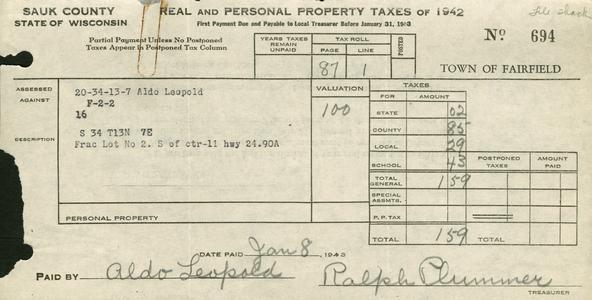 SAUK COUNTY
STATE OF WISCONSIN
REAL AND PERSONAL PROPERTY TAXES OF 1942
First Payment Due and Payable to Local Treasurer Before January 31, 1943
the shack
Partial Payment Unless No Postponed
Taxes Appear in Postponed Tax Column
YEARS TAXES REMAIN UNPAID
TAX ROLL
PAGE LINE
87 1
POSTED
No 694
TOWN OF FAIRFIELD
ASSESSED AGAINST
20-34-13-7 Aldo Leopold
F-2-2
16
DESCRIPTION
S 34 T13N 7E
Frac Lot No 2. S of ctr-11 hwy 24.90A
PERSONAL PROPERTY
VALUATION
100
TAXES
FOR AMOUNT
STATE 02
COUNTY 85
LOCAL 29
SCHOOL 43
POSTPONED TAXES AMOUNT PAID
TOTAL GENERAL 1 59
SPECIAL ASSMTS.
P. P. TAX
TOTAL 1 59 TOTAL
DATE PAID Jan 8, 1943
PAID BY Aldo Leopold Ralph Plummer
TREASURER